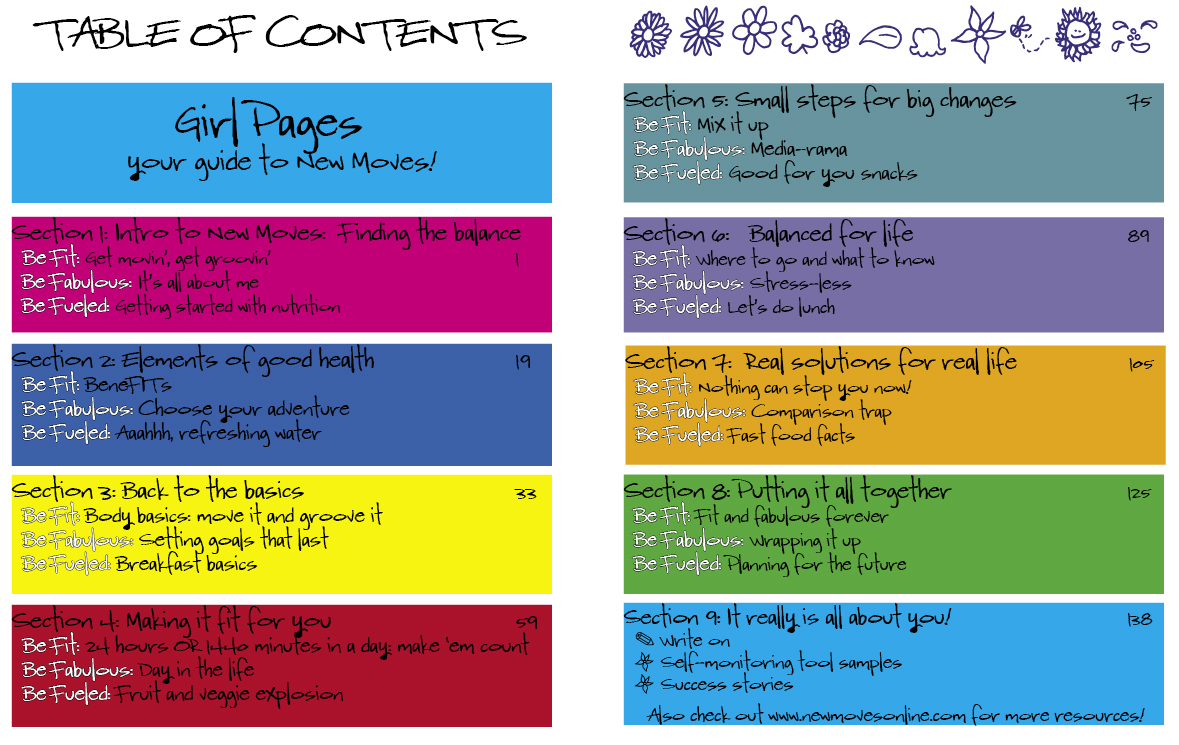 TABLE OF CONTENTS
Girl Pages
your guide to New Moves!
Section 1: Intro to New Moves: Finding the balance
Be Fit: Get movin', get groovin' 1
Be Fabulous: It's all about me
Be Fueled: Getting started with nutrition
Section 2: Elements of good health 19
Be Fit: BeneFITs
Be Fabulous: Choose your adventure
Be Fueled: Aaahhh, refreshing water
Section 3: Back to the basics 33
Be Fit: Body basics: move it and groove it
Be Fabulous: Setting goals that last
Be Fueled: Breakfast basics
Section 4: Making it fit for you 59
Be Fit: 24 hours OR 1440 minutes in a day: make 'em count
Be Fabulous: Day in the life
Be Fueled: Fruit and veggie explosion
Section 5: Small steps for big changes 75
Be Fit: Mix it up
Be Fabulous: Media-rama
Be Fueled: Good for you snacks
Section 6: Balanced for life 89
Be Fit: Where to go and what to know
Be Fabulous: Stress-less
Be Fueled: Let's do lunch
Section 7: Real solutions for real life 105
Be Fit: Nothing can stop you now!
Be Fabulous: Comparison trap
Be Fueled: Fast food facts
Section 8: Putting it all together 125
Be Fit: Fit and fabulous forever
Be Fabulous: Wrapping it up
Be Fueled: Planning for the future
Section 9: It really is all about you! 138
Write on
Self-monitoring tool samples
Success stories
Also check out www.newmovesonline.com for more resources!